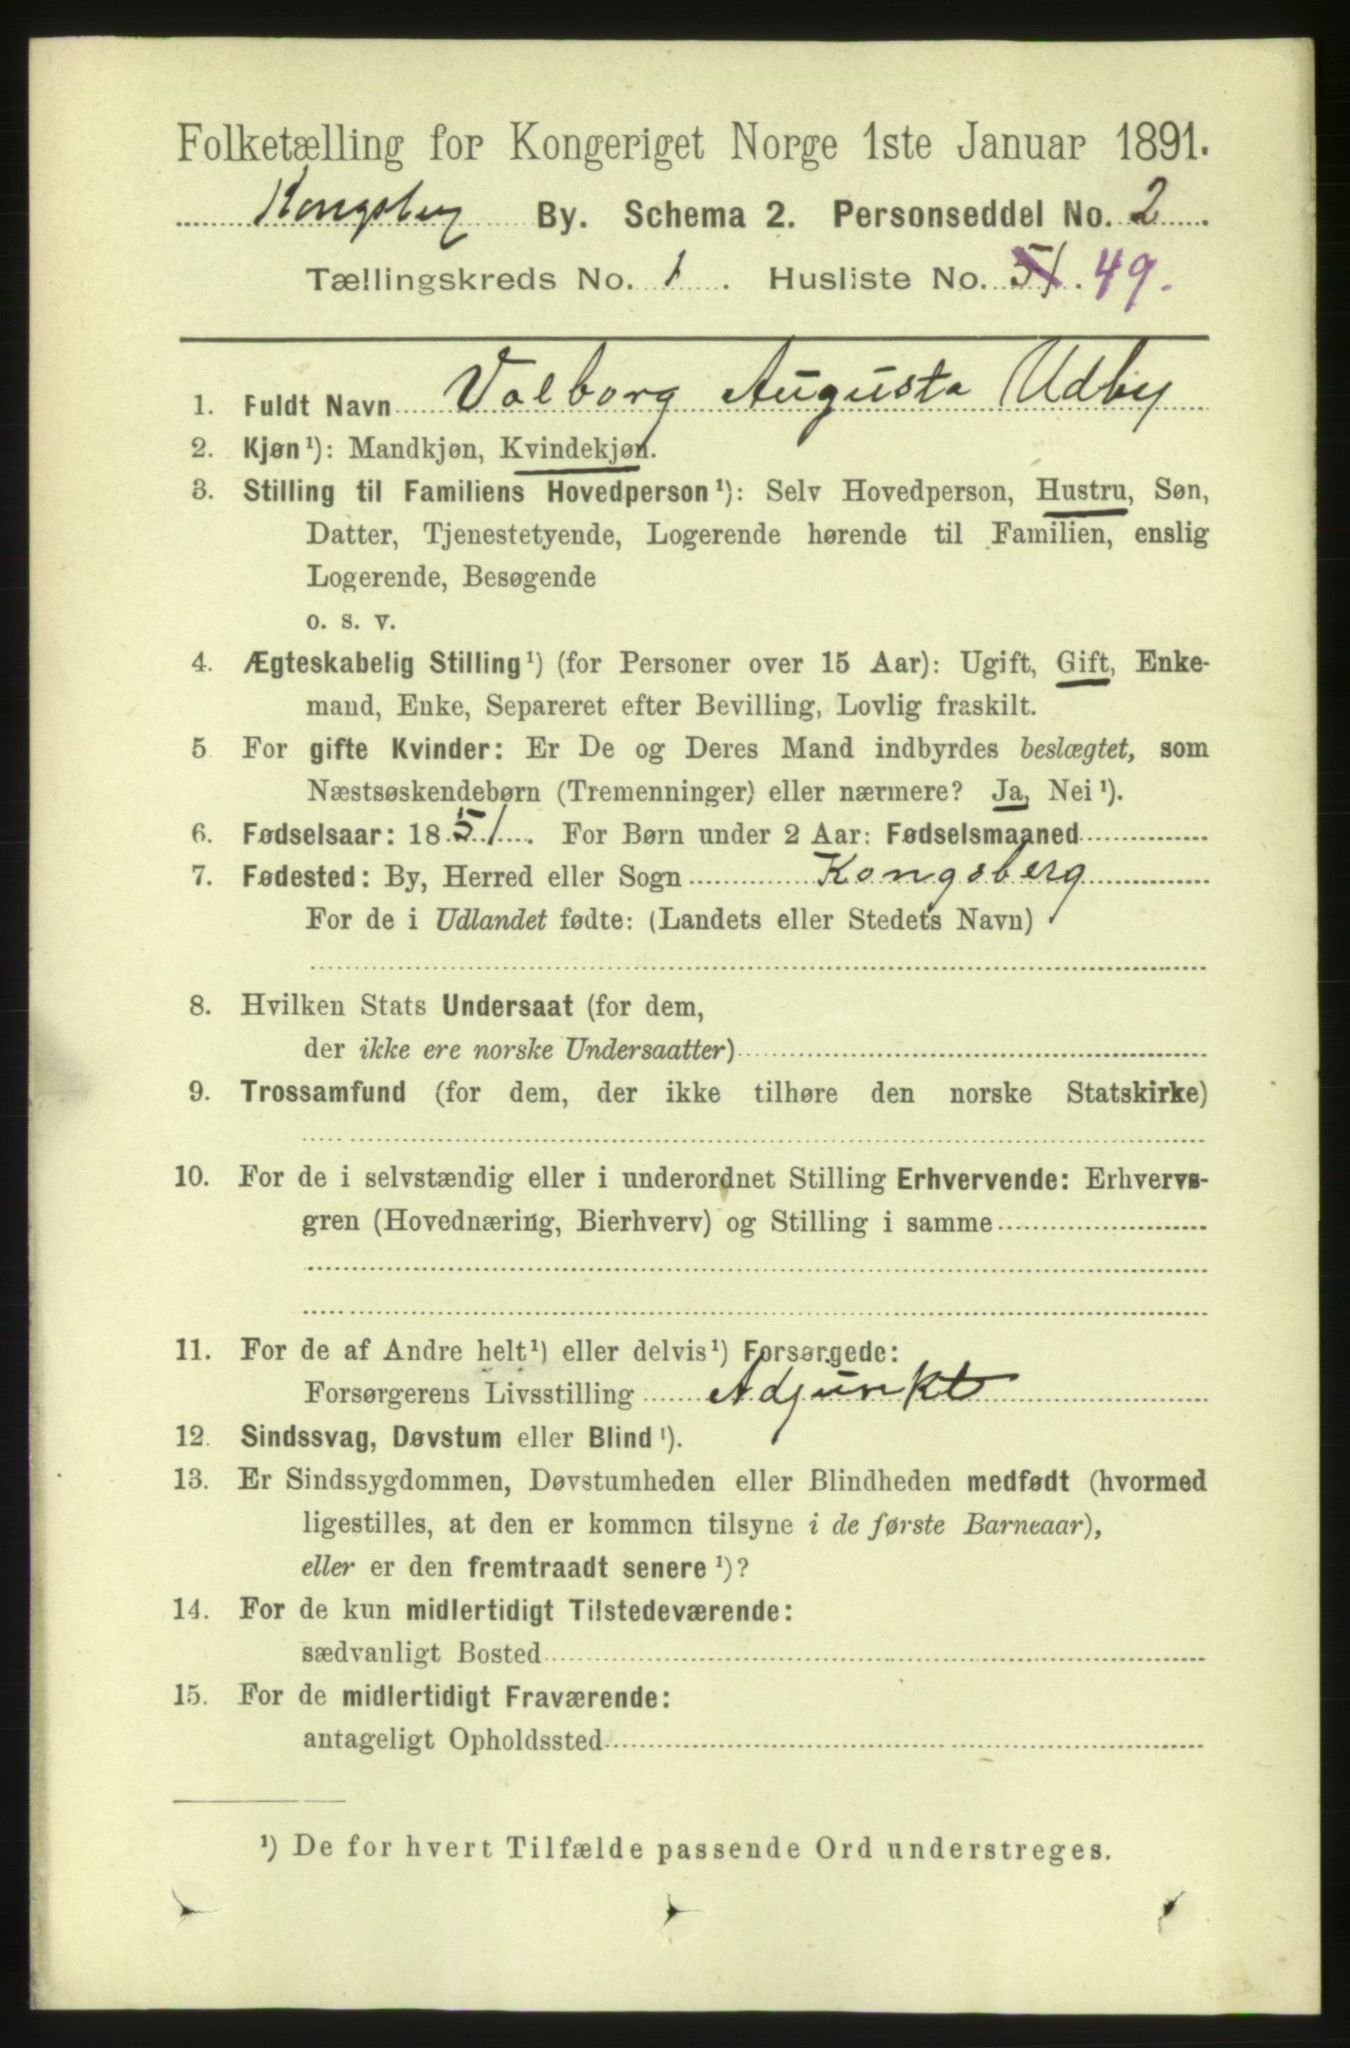 Folketælling for Kongeriget Norge 1ste Januar 1891.
Kongsberg By. Schema 2. Personseddel No. 2
Tællingskreds No. 1. Husliste No. 51. 49.
1. Fuldt Navn Valborg Augusta Udby
2. Kjøn¹): Mandkjøn, Kvindekjøn.
3. Stilling til Familiens Hovedperson¹): Selv Hovedperson, Hustru, Søn,
Datter, Tjenestetyende, Logerende hørende til Familien, enslig
Logerende, Besøgende
o. s. v.
4. Ægteskabelig Stilling¹) (for Personer over 15 Aar): Ugift, Gift, Enke-
mand, Enke, Separeret efter Bevilling, Lovlig fraskilt.
5 For gifte Kvinder: Er De og Deres Mand indbyrdes beslægtet, som
Næstsøskendebørn (Tremenninger) eller nærmere? Ja, Nei¹).
6. Fødselsaar: 1851. For Børn under 2 Aar: Fødselsmaaned
7. Fødested: By, Herred eller Sogn Kongsberg
For de i Udlandet fødte: (Landets eller Stedets Navn)
8. Hvilken Stats Undersaat (for dem,
der ikke ere norske Undersaatter)
9. Trossamfund (for dem, der ikke tilhøre den norske Statskirke)
10. For de i selvstændig eller i underordnet Stilling Erhvervende: Erhvervs-
gren (Hovednæring, Bierhverv) og Stilling i samme
11. For de af Andre helt¹) eller delvis¹) Forsørgede:
Forsørgerens Livsstilling Adjunkt
12. Sindssvag, Døvstum eller Blind¹).
13. Er Sindssygdommen, Døvstumheden eller Blindheden medfødt (hvormed
ligestilles, at den er kommen tilsyne i de første Barneaar),
eller er den fremtraadt senere¹)?
14. For de kun midlertidigt Tilstedeværende:
sædvanligt Bosted
15. For de midlertidigt Fraværende:
antageligt Opholdssted
¹) De for hvert Tilfælde passende Ord understreges.